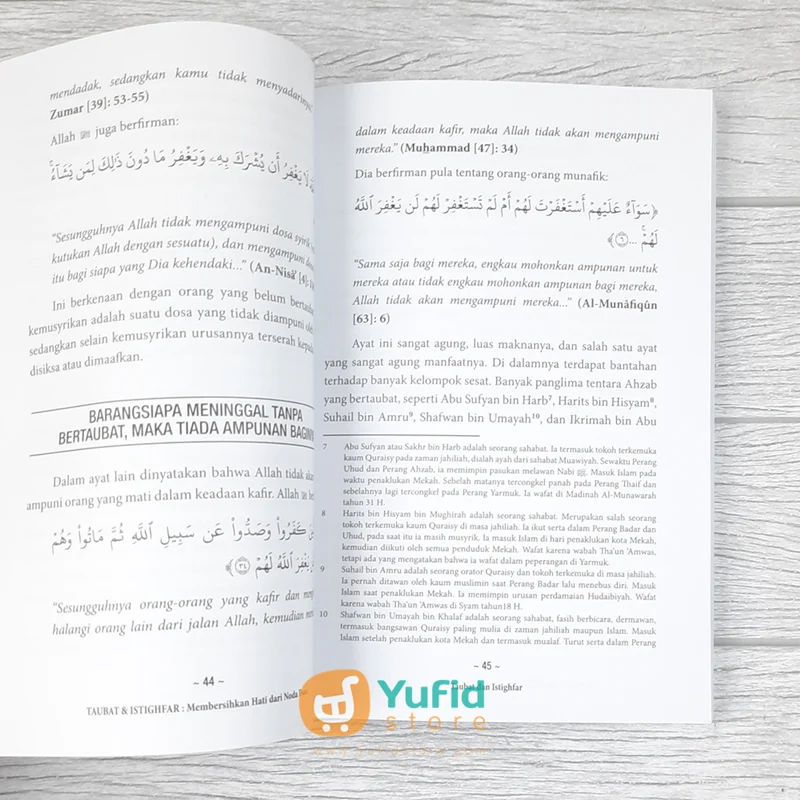 mendadak, sedangkan kamu tidak menyadarinya
Zumar [39]: 53-55)
Allah ﷺ juga berfirman:
لَا يَغْفِرُ أَن يُشْرَكَ بِهِۦ وَيَغْفِرُ مَا دُونَ ذَٰلِكَ لِمَن يَشَآءُ ۚ
“Sesungguhnya Allah tidak mengampuni dosa syirik
kutukan Allah dengan sesuatu), dan mengampuni
itu bagi siapa yang Dia kehendaki...” (An-Nisâ’ [4]:
Ini berkenaan dengan orang yang belum bertaubat
kemusyrikan adalah suatu dosa yang tidak diampuni
sedangkan selain kemusyrikan urusannya terserah kepada
disiksa atau dimaafkan.
BARANGSIAPA MENINGGAL TANPA
BERTAUBAT, MAKA TIADA AMPUNAN BAGINYA
Dalam ayat lain dinyatakan bahwa Allah tidak
ampuni orang yang mati dalam keadaan kafir. Allah
كَفَرُوا۟ وَصَدُّوا۟ عَن سَبِيلِ ٱللَّهِ ثُمَّ مَاتُوا۟ وَهُمْ
يَغْفِرَ ٱللَّهُ لَهُمْ ﴿٣٤﴾
“Sesungguhnya orang-orang yang kafir dan
halangi orang lain dari jalan Allah, kemudian
~ 44 ~
TAUBAT & ISTIGHFAR : Membersihkan Hati dari Noda
dalam keadaan kafir, maka Allah tidak akan mengampuni
mereka.” (Muhammad [47]: 34)
Dia berfirman pula tentang orang-orang munafik:
﴿سَوَآءٌ عَلَيْهِمْ أَسْتَغْفَرْتَ لَهُمْ أَمْ لَمْ تَسْتَغْفِرْ لَهُمْ لَن يَغْفِرَ ٱللَّهُ
لَهُمْ ۚ ... ٦﴾
“Sama saja bagi mereka, engkau mohonkan ampunan untuk
mereka atau tidak engkau mohonkan ampunan bagi mereka,
Allah tidak akan mengampuni mereka...” (Al-Munâfiqûn
[63]: 6)
Ayat ini sangat agung, luas maknanya, dan salah satu ayat
yang sangat agung manfaatnya. Di dalamnya terdapat bantahan
terhadap banyak kelompok sesat. Banyak panglima tentara Ahzab
yang bertaubat, seperti Abu Sufyan bin Harb⁷, Harits bin Hisyam⁸,
Suhail bin Amru⁹, Shafwan bin Umayah¹⁰, dan Ikrimah bin Abu
7 Abu Sufyan atau Sakhr bin Harb adalah seorang sahabat. Ia termasuk tokoh terkemuka
kaum Quraisy pada zaman jahiliah, dialah ayah dari sahabat Muawiyah. Sewaktu Perang
Uhud dan Perang Ahzab, ia memimpin pasukan melawan Nabi ﷺ. Masuk Islam pada
waktu penaklukan Mekah. Sebelah matanya tercongkel panah pada Perang Thaif dan
sebelahnya lagi tercongkel pada Perang Yarmuk. Ia wafat di Madinah Al-Munawarah
tahun 31 H.
8 Harits bin Hisyam bin Mughirah adalah seorang sahabat. Merupakan salah seorang
tokoh terkemuka kaum Quraisy di masa jahiliah. Ia ikut serta dalam Perang Badar dan
Uhud, pada saat itu ia masih musyrik. Ia masuk Islam di hari penaklukan kota Mekah,
kemudian diikuti oleh semua penduduk Mekah. Wafat karena wabah Tha'un 'Amwas,
tetapi ada yang mengatakan bahwa ia wafat dalam peperangan di Yarmuk.
9 Suhail bin Amru adalah seorang orator Quraisy dan tokoh terkemuka di masa jahiliah.
Ia pernah ditawan oleh kaum muslimin saat Perang Badar lalu menebus diri. Masuk
Islam saat penaklukan Mekah. Ia memimpin urusan perdamaian Hudaibiyah. Wafat
karena wabah Tha'un 'Amwas di Syam tahun18 H.
10 Shafwan bin Umayah bin Khalaf adalah seorang sahabat, fasih berbicara, dermawan,
termasuk bangsawan Quraisy paling mulia di zaman jahiliah maupun Islam. Masuk
Islam setelah penaklukan kota Mekah dan termasuk mualaf. Turut serta dalam Perang
~ 45 ~
Taubat dan Istighfar
Yufid
store